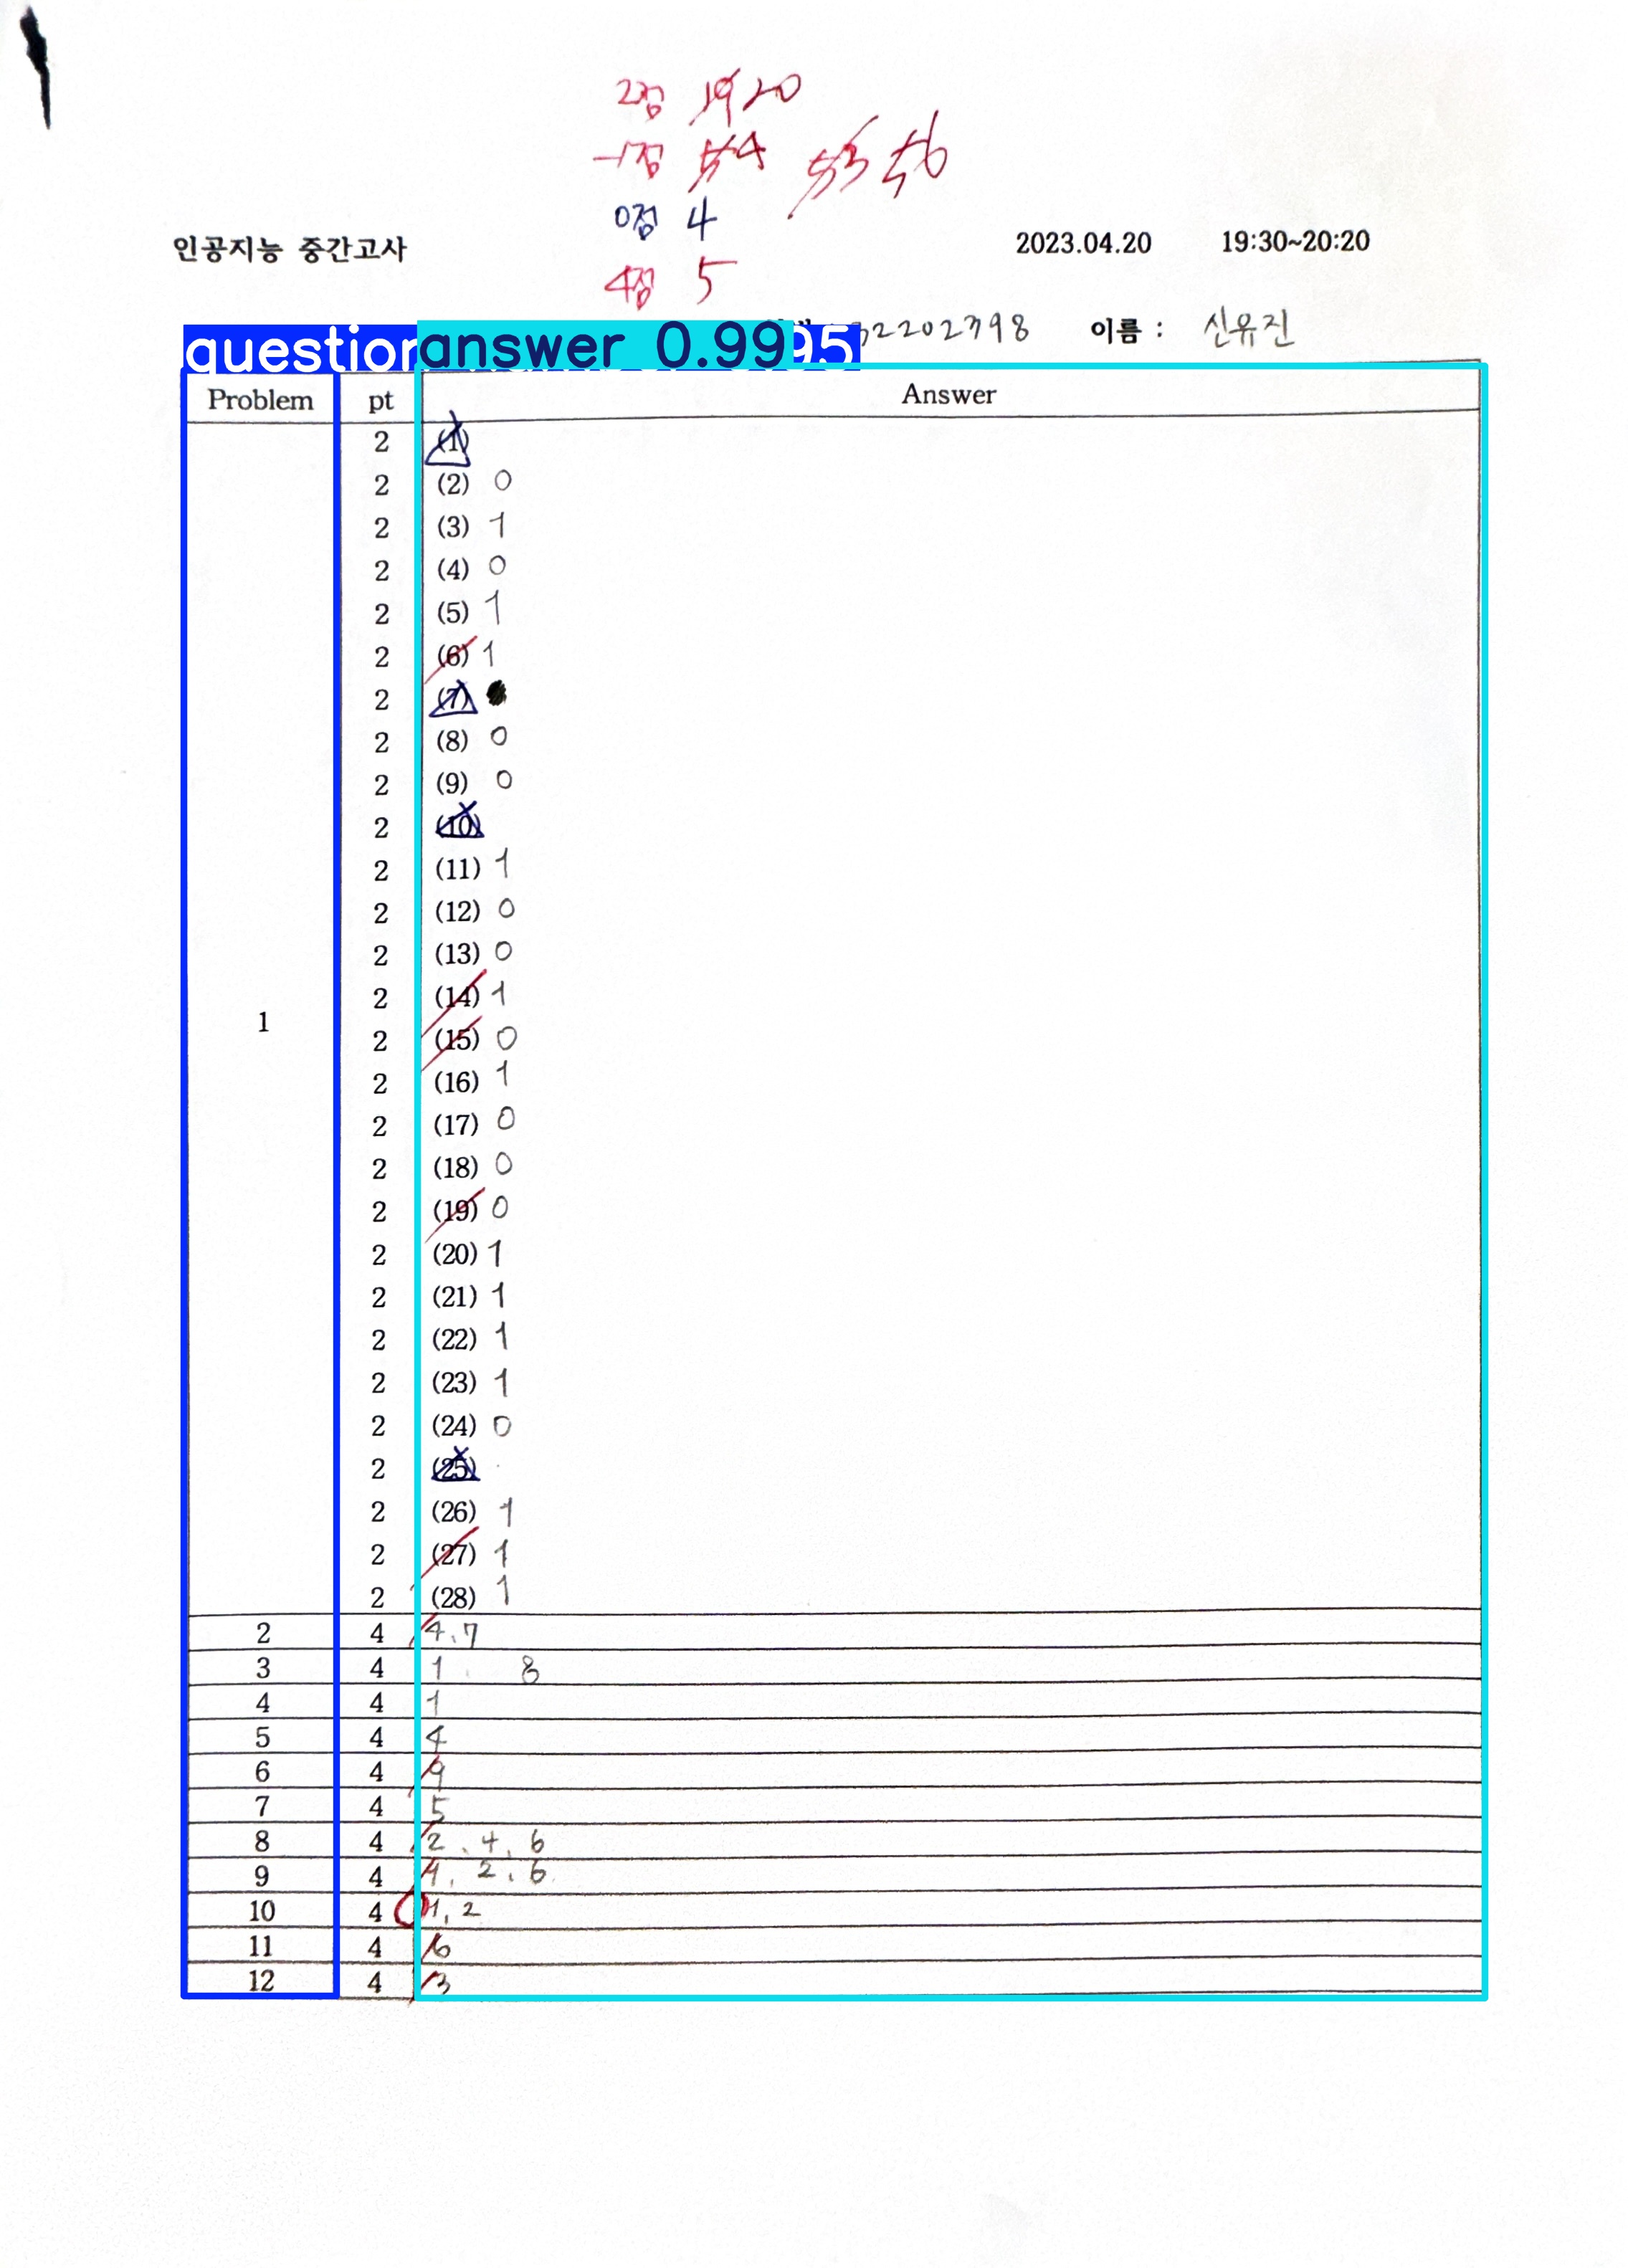 2점 19 20
-1점 5 4 53 56
0점 4
4점 5
인공지능 중간고사 2023.04.20 19:30~20:20
32202798 이름 : 신유진
question answer 0.99 95
Problem pt Answer
2 (1)
2 (2) 0
2 (3) 1
2 (4) 0
2 (5) 1
2 (6) 1
2 (7)
2 (8) 0
2 (9) 0
2 (10)
2 (11) 1
2 (12) 0
2 (13) 0
2 (14) 1
1
2 (15) 0
2 (16) 1
2 (17) 0
2 (18) 0
2 (19) 0
2 (20) 1
2 (21) 1
2 (22) 1
2 (23) 1
2 (24) 0
2 (25)
2 (26) 1
2 (27) 1
2 (28) 1
2 4 4, 7
3 4 1. 8
4 4 1
5 4 4
6 4 9
7 4 5
8 4 2, 4, 6
9 4 4, 2, 6
10 4 1, 2
11 4 6
12 4 3